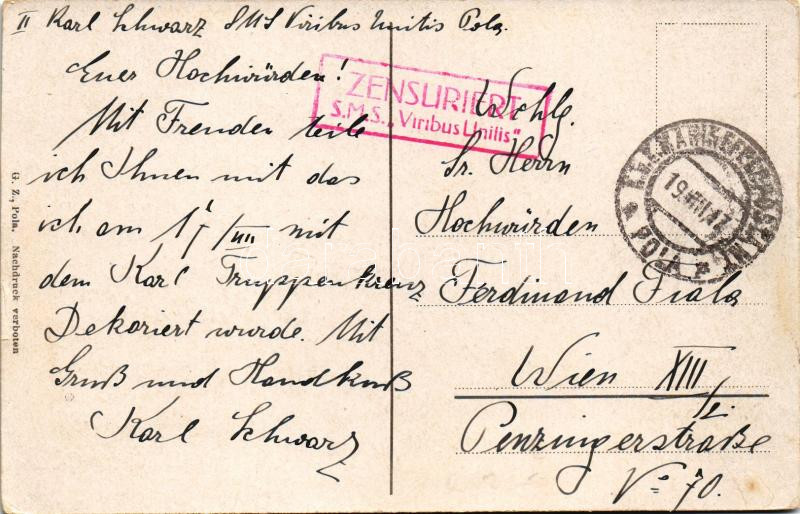 II Karl Schwarz SMS Viribus Unitis Pola.
Euer Hochwürden!
Mit Freuden teile
ich Ihnen mit das
ich am 17/VIII mit
dem Karl Truppenkreuz
Dekoriert wurde. Mit
Gruß und Handkuß
Karl Schwarz
ZENSURIERT
S.M.S. „Viribus Unitis“
Wohlg.
Sr. Herrn
Hochwürden
Ferdinand Fiala
Wien XIII/2.
Penzingerstraße
No 70.
K.U.K. MARINEFELDPOSTAMT
19.VIII.17
* POLA *
G. Z., Pola. Nachdruck verboten